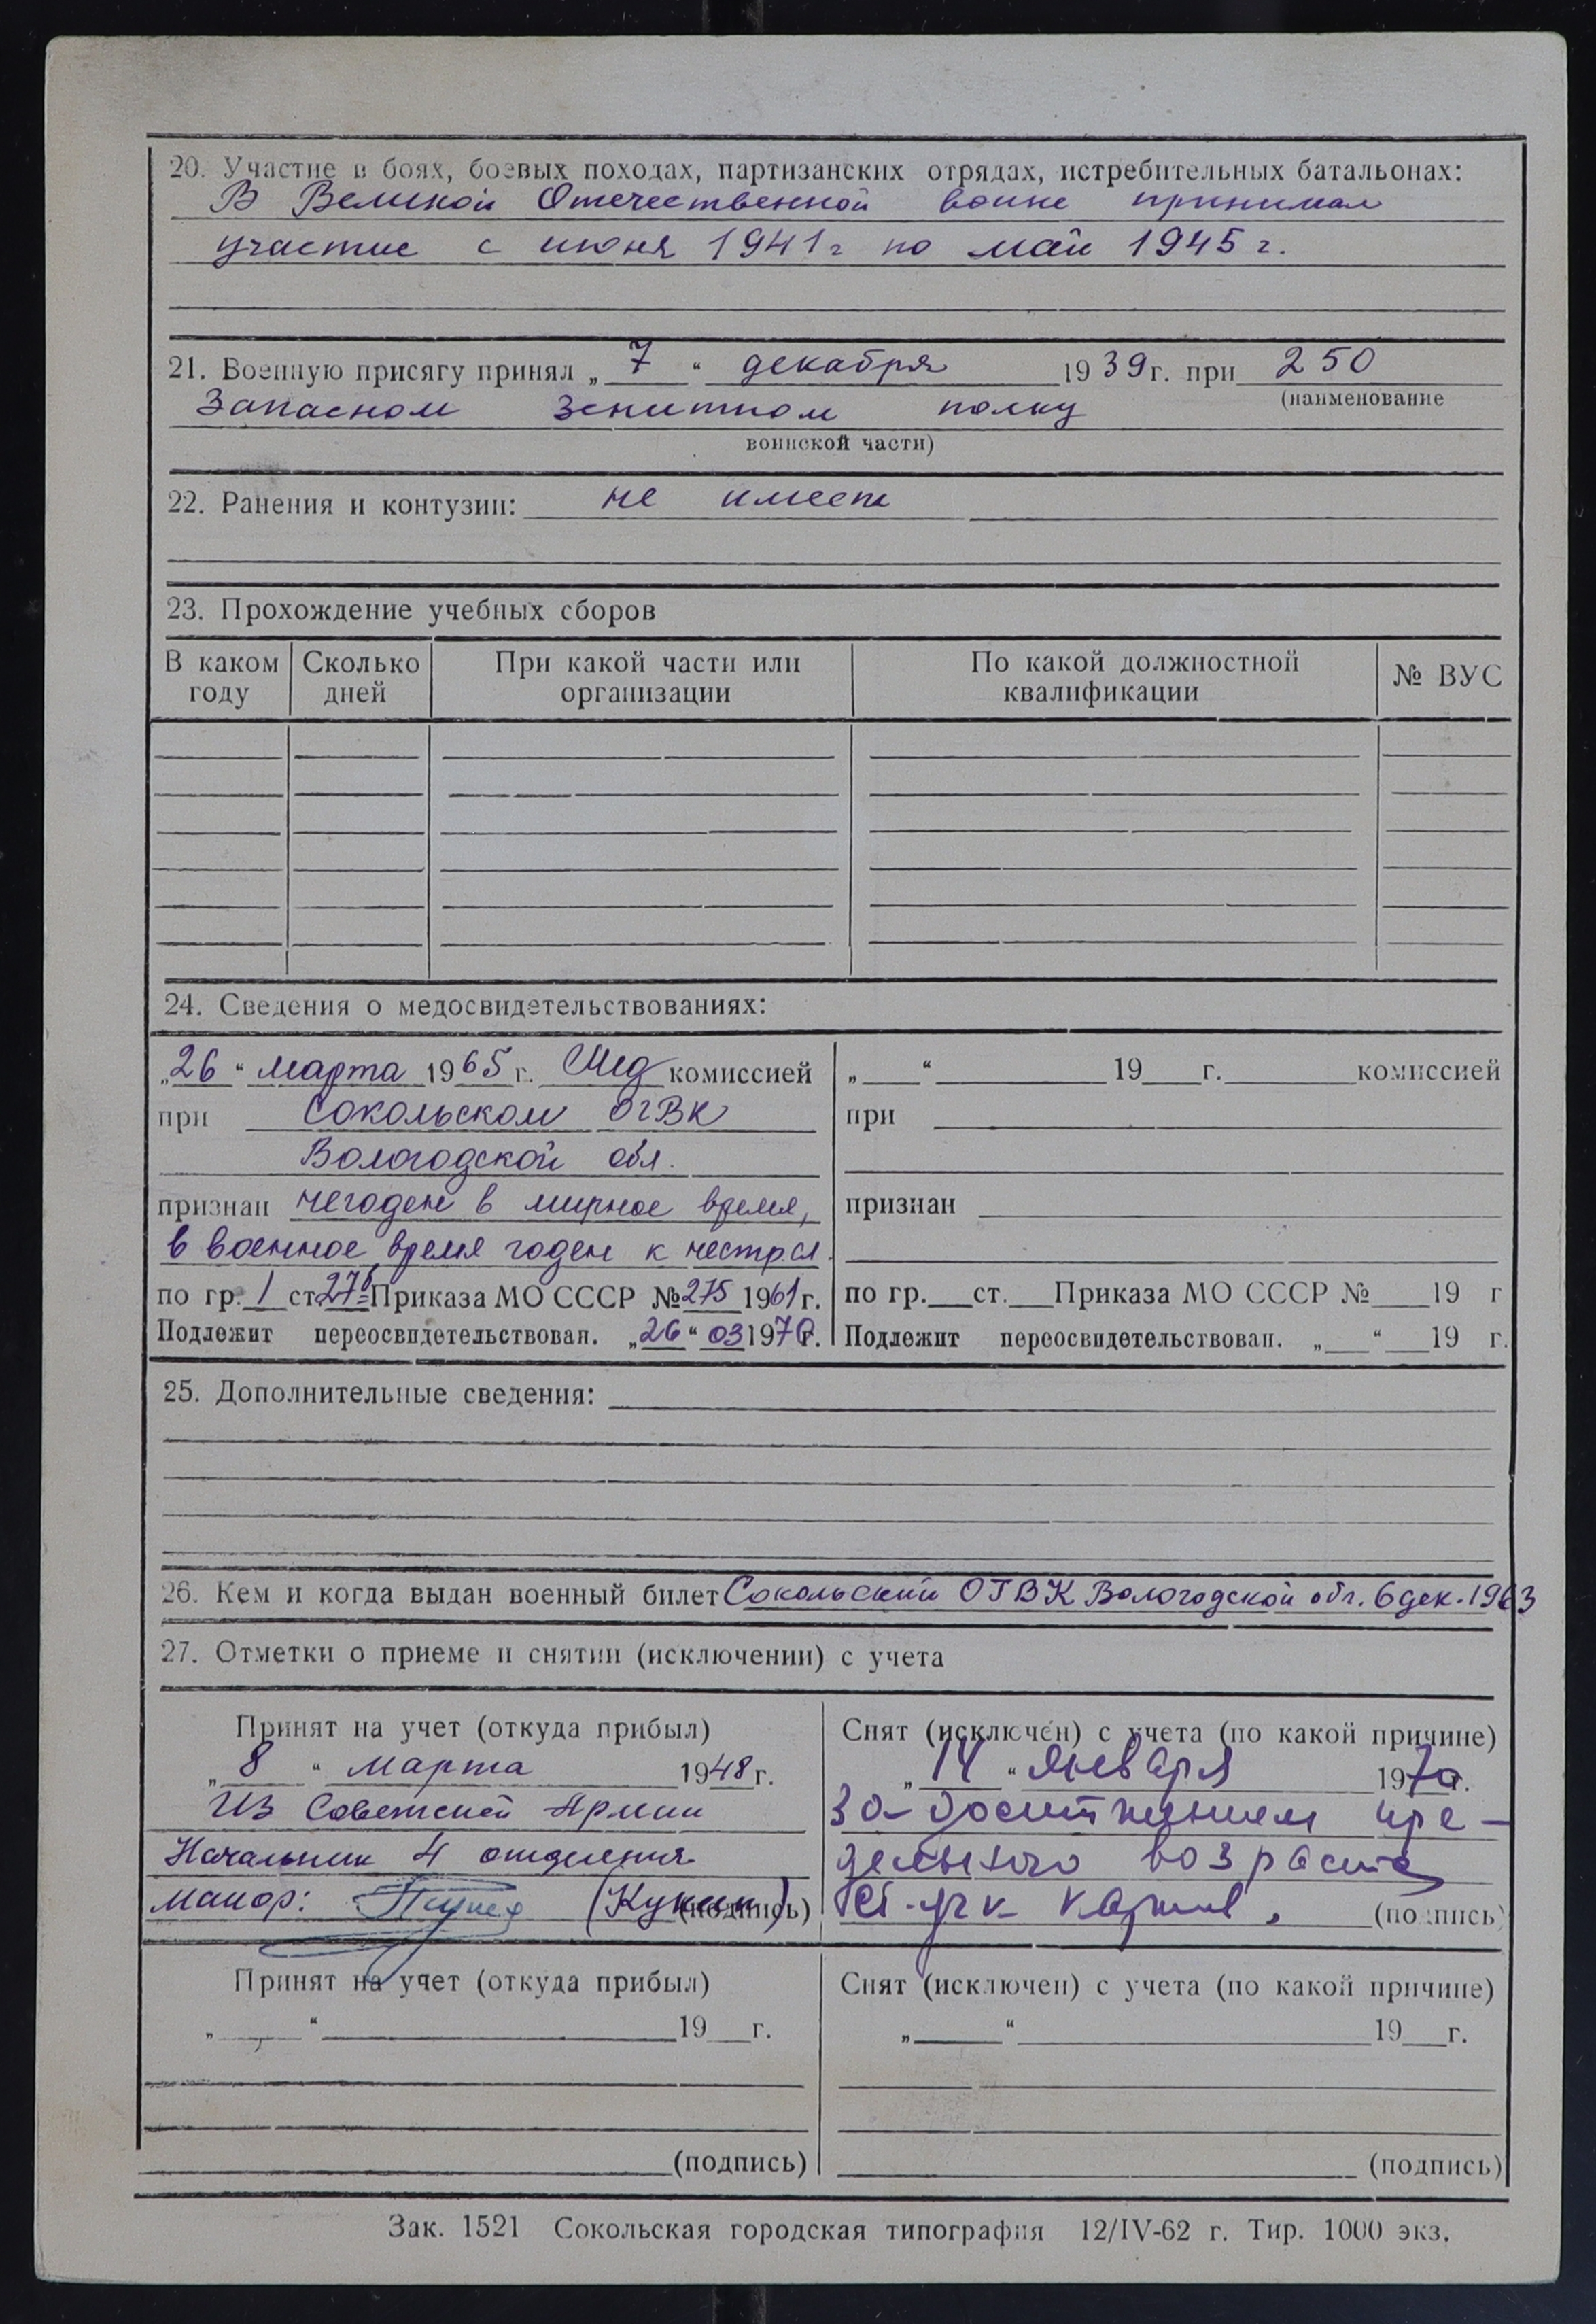 20. Участие в боях, боевых походах, партизанских отрядах, истребительных батальонах:
В Великой Отечественной воине принимал
участие с июня 1941 г по май 1945 г.
21. Военную присягу принял „7“ декабря 1939 г. при 250
(наименование
Запасном зенитном полку
воинской части)
22. Ранения и контузии: не имеет
23. Прохождение учебных сборов
В каком году | Сколько дней | При какой части или организации | По какой должностной квалификации | № ВУС
24. Сведения о медосвидетельствованиях:
„26“ марта 1965 г. Мед комиссией
при Сокольском ОГВК
Вологодской обл.
признан негоден в мирное время,
в военное время годен к нестр.сл.
по гр. 1 ст 27б Приказа МО СССР № 275 1961 г.
Подлежит переосвидетельствован. „26“ 03 1970 г.
„ “ 19 г. комиссией
при
признан
по гр. ст. Приказа МО СССР № 19 г
Подлежит переосвидетельствован. „ “ 19 г.
25. Дополнительные сведения:
26. Кем и когда выдан военный билет Сокольский ОГВК Вологодской обл. 6 дек. 1963
27. Отметки о приеме и снятии (исключении) с учета
Принят на учет (откуда прибыл)
„8“ марта 1948 г.
Из Советской Армии
Начальник 4 отделения
майор: (Кукин) (подпись)
Снят (исключен) с учета (по какой причине)
„14“ января 1970 г.
За достижением пре-
дельного возраста
(подпись)
Принят на учет (откуда прибыл)
„ “ 19 г.
(подпись)
Снят (исключен) с учета (по какой причине)
„ “ 19 г.
(подпись)
Зак. 1521 Сокольская городская типография 12/IV-62 г. Тир. 1000 экз.